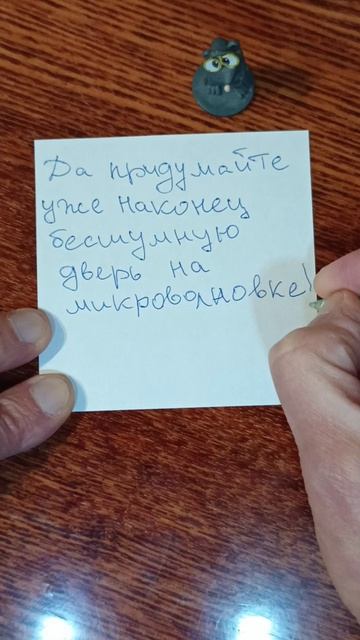 Да придумайте
уже наконец
бесшумную
дверь на
микроволновке!